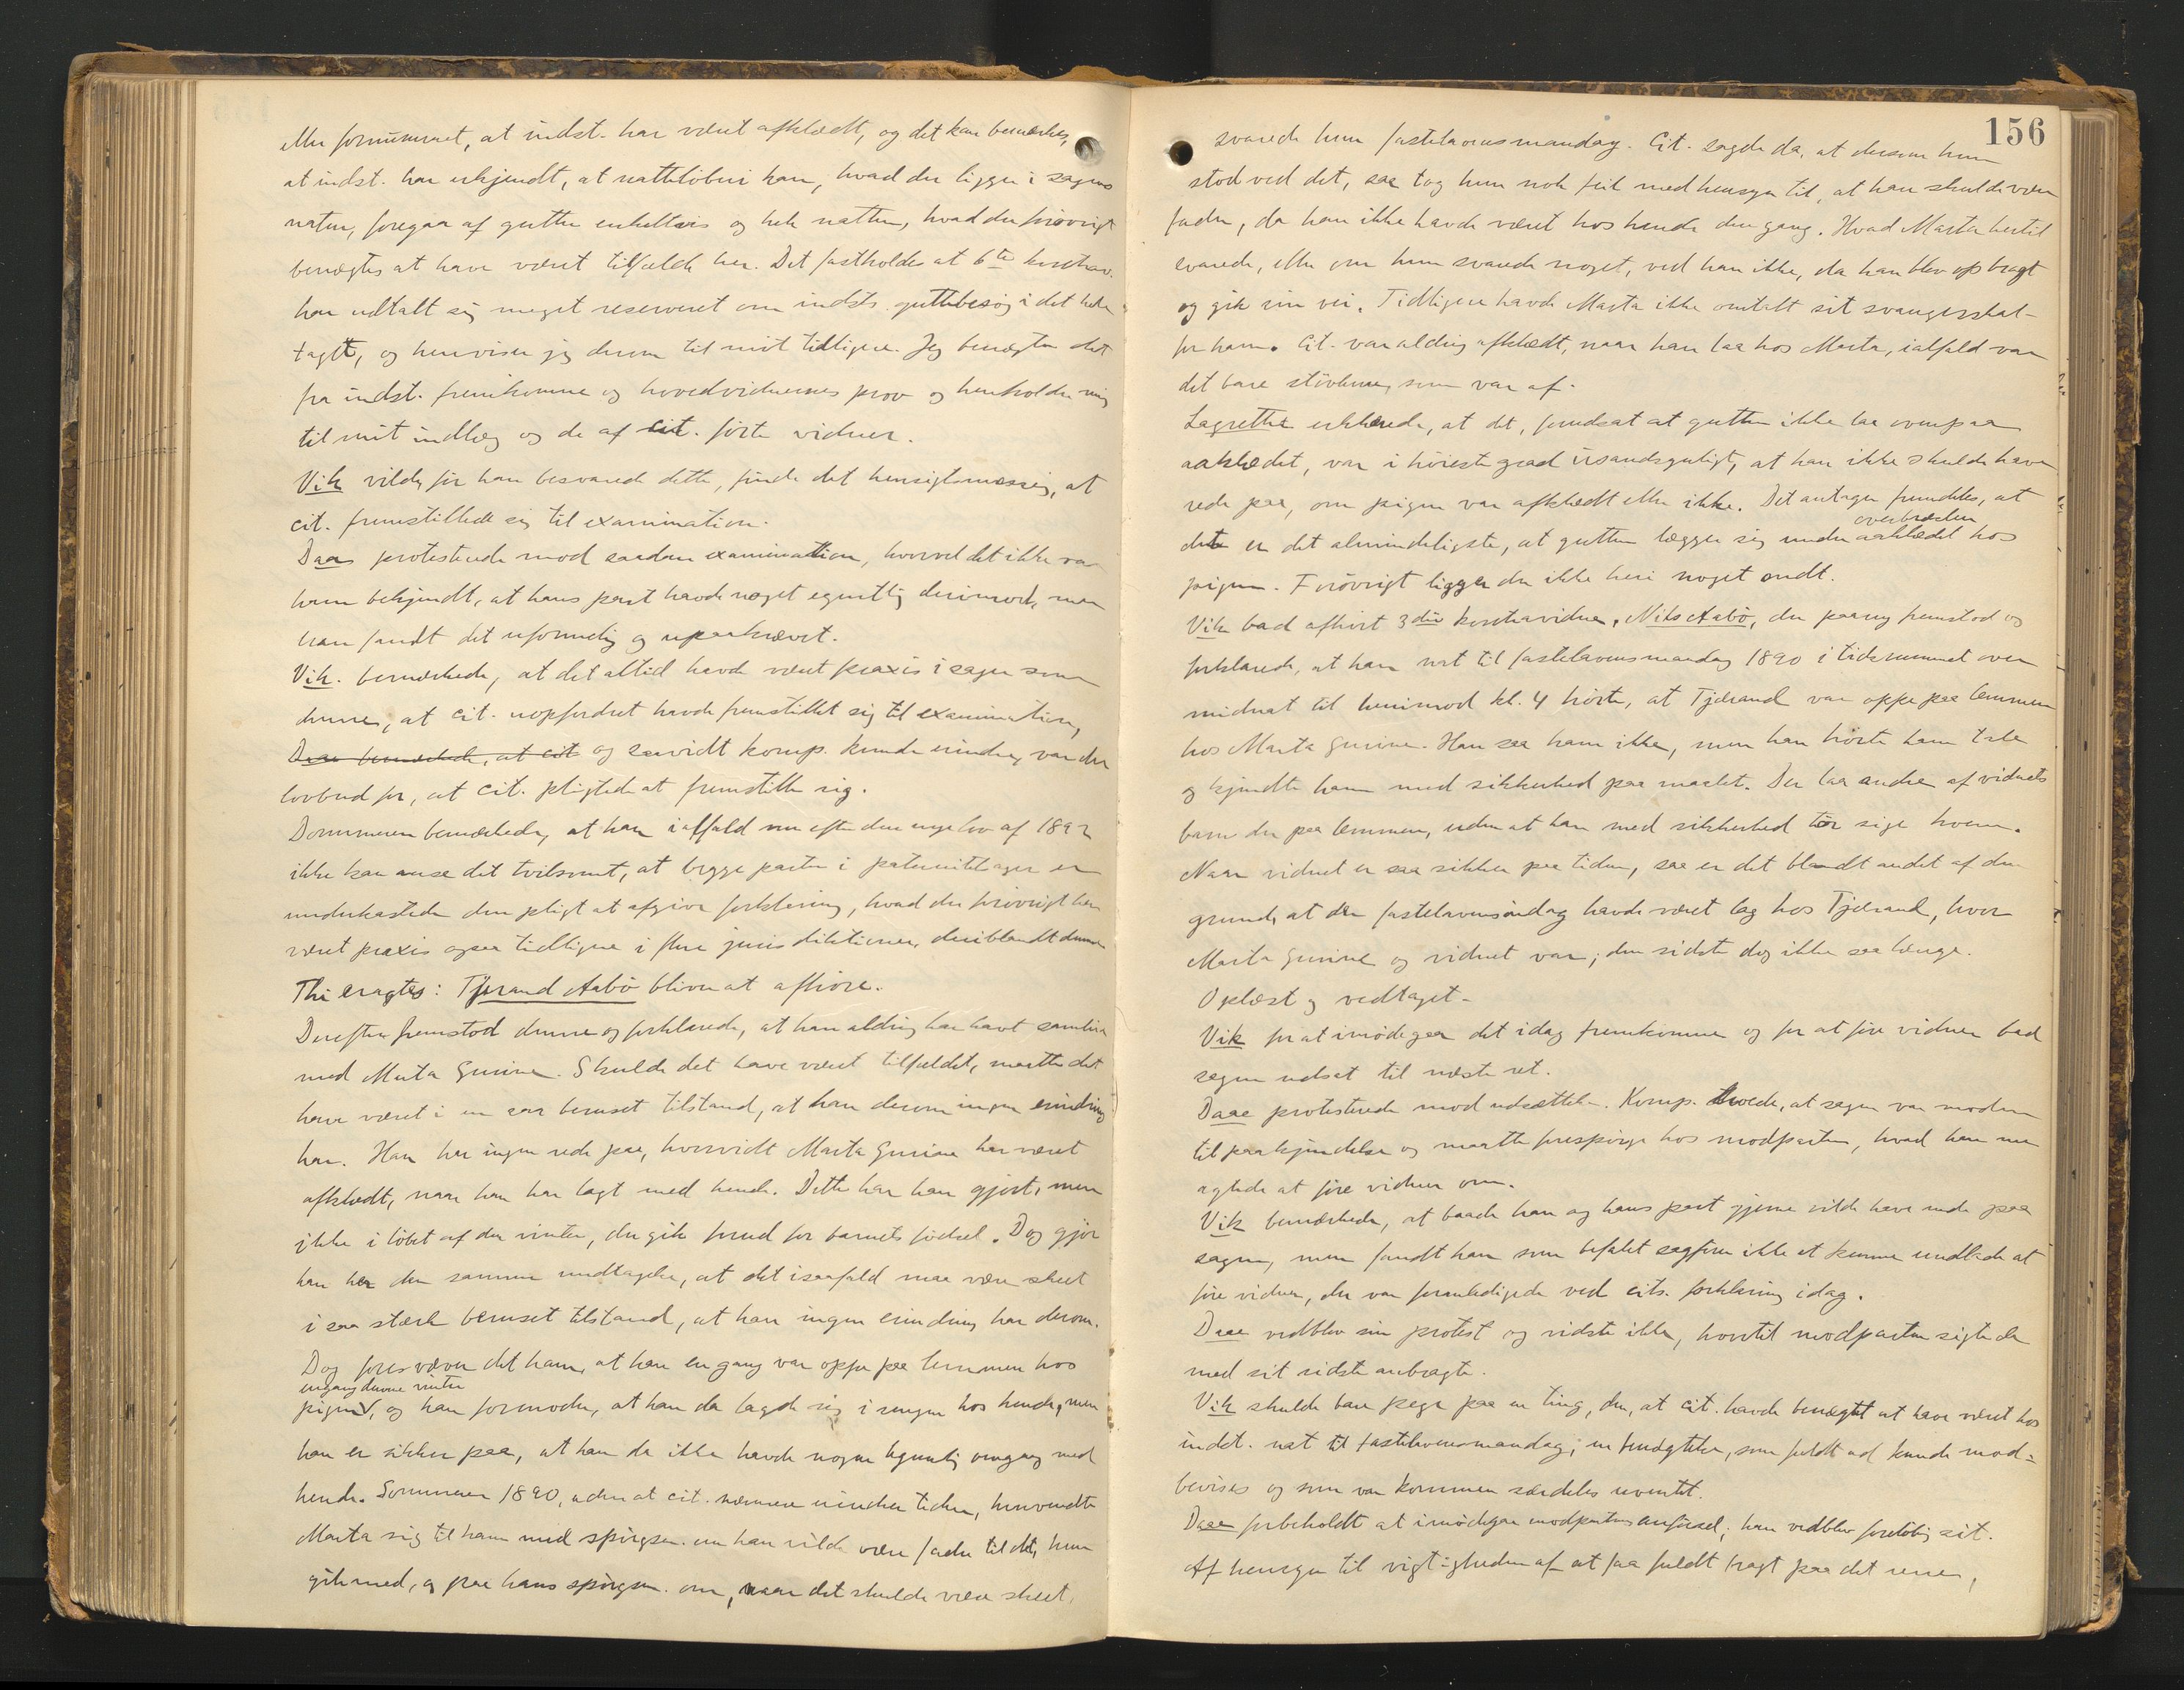 eller fornummet, at indst. har været afklædt, og det kan bemærkes,
at indst. har erkjendt, at natteløberi kan, hvad der ligger i sagens
natur, foregaa af gutter enkeltvis og hele natten, hvad der forøvrigt
benegtes at have været tilfælde her. Det fastholdes at 6te
har udtalt sig meget reserveret om indsts guttebesøg i det hele
tagtt, og henviser jeg derom til mit tidligere. Jeg benegter det
fra indst. fremkomne og hovedvidnernes prov og henholder mig
til mit indlæg og de af cit. førte vidner.
Vik vilde, før han besvarede dette, finde det hensigtsmæssig, at
cit. fremstillede sig til examination.
Daae protesterede mod saadan examination, hvorvel det ikke var
ham bekjendt, at hans part havde noget egentlig derimod, men
han fandt det ufornuelig og upaakrævet.
Vik. bemærkede, at det altid havde været praxis i sager som
denne, at cit. uopfordret havde fremstillet sig til examination,
Daae bemærkede, at cit og saavidt komp. kunde erindre, var der
lovbud for, at cit. pligtede at fremstille sig.
Dommeren bemærkede, at han ialfald nu efter den nye lov af 1892
ikke kan anse det tvilsomt, at begge parter i paternitetsager er
underkastede den pligt at afgive forklaring, hvad der forøvrigt har
været praxis ogsaa tidligere i flere jurisdiktioner, deriblandt denne
Thi eragtes: Tjerand Aabø bliver at afhøre.
Derefter fremstod denne og forklarede, at han aldrig har havt samleie
med Marta Gurine. Skulde det have været tilfældet, maatte det
have været i en saa beruset tilstand, at han derom ingen erindring
har. Han har ingen rede paa, hvorvidt Marta Gurine har været
afklædt, naar han har lagt med hende. Dette har han gjort, men
ikke i løbet af den vinter, der gik forud for barnets fødsel. Dog gjør
han her den samme undtagelse, at det isaafald maa være skeet
i saa stærk beruset tilstand, at han ingen erindring har derom.
Dog foresvæver det ham, at han en gang var oppe paa lemmen hos
engang denne vinter
pigen, og han formoder, at han da lagde sig i sengen hos hende, men
han er sikker paa, at han da ikke havde nogen egentlig omgang med
hende. Sommeren 1890, uden at cit. nærmere erindrer tiden, henvendte
Marta sig til ham med spørgsm. om han vilde være fader til det, hun
gik med, og paa hans spørgsm. om, naar det skulde være skeet,
156
svarede hun fastelavnsmandag. Cit. sagde da, at dersom hun
stod ved det, saa tog hun nok feil med hensyn til, at han skulde være
fader, da han ikke havde været hos hende den gang. Hvad Marta hertil
svarede, eller om hun svarede noget, ved han ikke, da han blev opbragt
og gik sin vei. Tidligere havde Marta ikke omtalt sit svangerskab
for ham. Cit. var aldrig afklædt, naar han laa hos Marta, ialfald var
det bare støvlerne, som var af.
Lagretten erklærede, at det, forudsat at gutten ikke laa ovenpaa
aaklædet, var i høieste grad usandsynligt, at han ikke skulde have
rede paa, om pigen var afklædt eller ikke. Det antages fremdeles, at
overbræden
det er det almindeligste, at gutten lægger sig under aaklædet hos
pigen. Forøvrigt ligger der ikke heri noget ondt.
Vik bad afhørt 3die kontravidne, Nils Aabø, der paany fremstod og
forklarede, at han nat til fastelavnsmandag 1890 i tidsrummet over
midnat til henimod kl. 4 hørte, at Tjerand var oppe paa lemmen
hos Marta Gurine. Han saa ham ikke, men han hørte ham tale
og kjendte ham med sikkerhed paa maalet. Der laa andre af vidnets
barn der paa lemmen, uden at han med sikkerhed tør sige hvem.
Naar vidnet er saa sikker paa tiden, saa er det blandt andet af den
grund, at der fastelavnsøndag havde været lag hos Tjerand, hvor
Marta Gurine og vidnet var; den sidste dog ikke saa længe.
Oplæst og vedtaget.
Vik for at imødegaa det idag fremkomne og for at føre vidner bad
sagen udsat til næste ret.
Daae protesterede mod udsættelse. Komp. troede, at sagen var moden
til paakjendelse og maatte forespørge hos modparten, hvad han nu
agtede at føre vidner om.
Vik bemærkede, at baade han og hans part gjerne vilde have ende paa
sagen, men fandt han som befalet sagfører ikke at kunne undlade at
føre vidner, der var foranledigede ved cits. forklaring idag.
Daae vedblev sin protest og vidste ikke, hvortil modparten sigtede
med sit sidste anbragte.
Vik skulde bare pege paa en ting, den, at cit. havde benegtet at have været hos
indst. nat til fastelavnsmandag; en benegtelse, som fuldt ud kunde mod=
bevises og som var kommen særdeles uventet.
Daae forbeholdt at imødegaa modpartens anførsel; han vedblev foreløbig sit.
Af hensyn til vigtigheden af at faa fuldt bragt paa det rene,